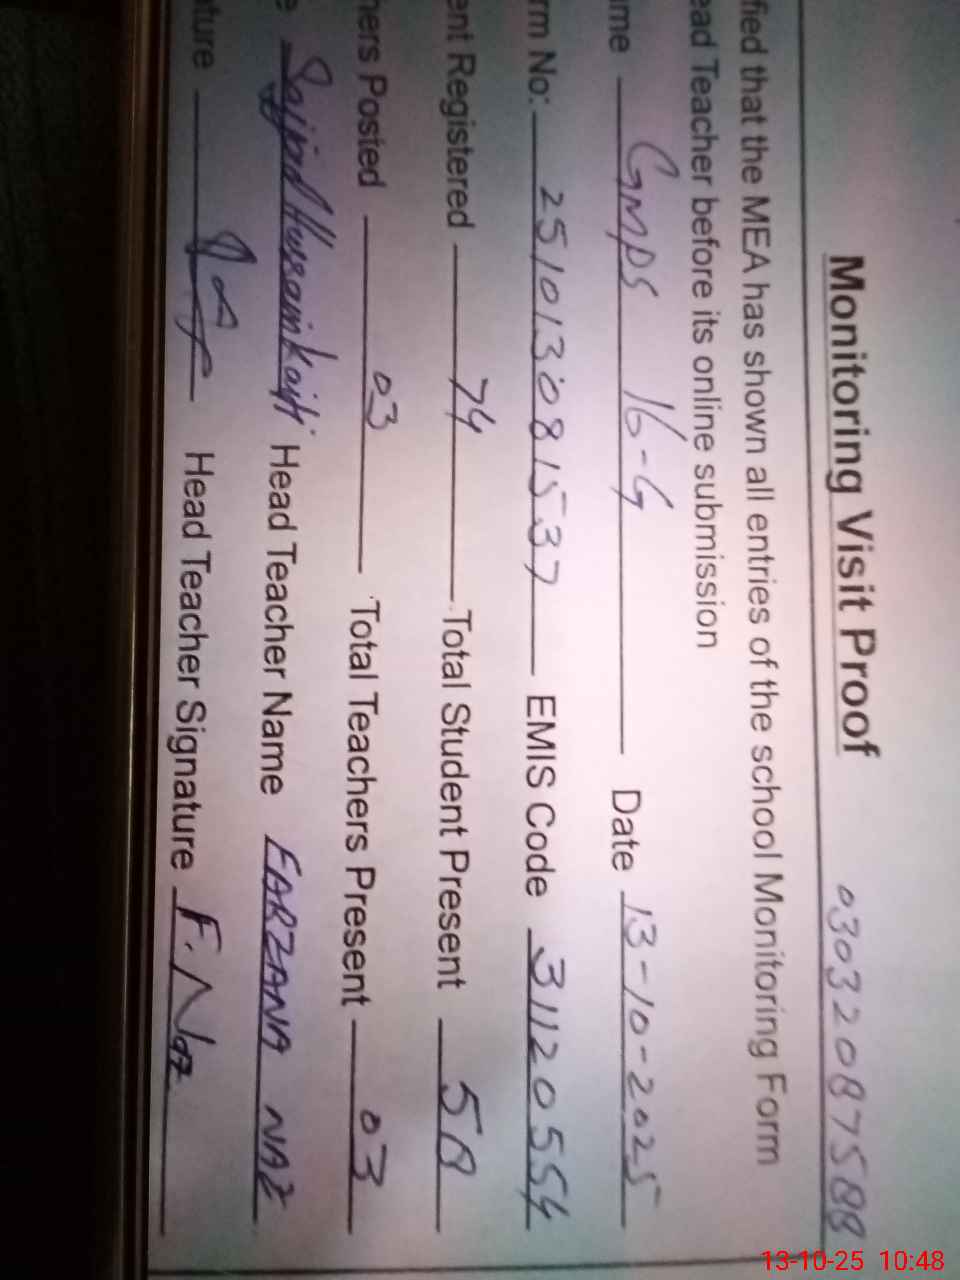 Monitoring Visit Proof 03032087588
fied that the MEA has shown all entries of the school Monitoring Form
ead Teacher before its online submission
me GMPS 16-G Date 13-10-2025
rm No: 251013081537 EMIS Code 31120554
ent Registered 74 Total Student Present 58
hers Posted 03 Total Teachers Present 03
e Sajjad Hussain Head Teacher Name FARZANA NAZ
ture Head Teacher Signature F. Naz
13-10-25 10:48